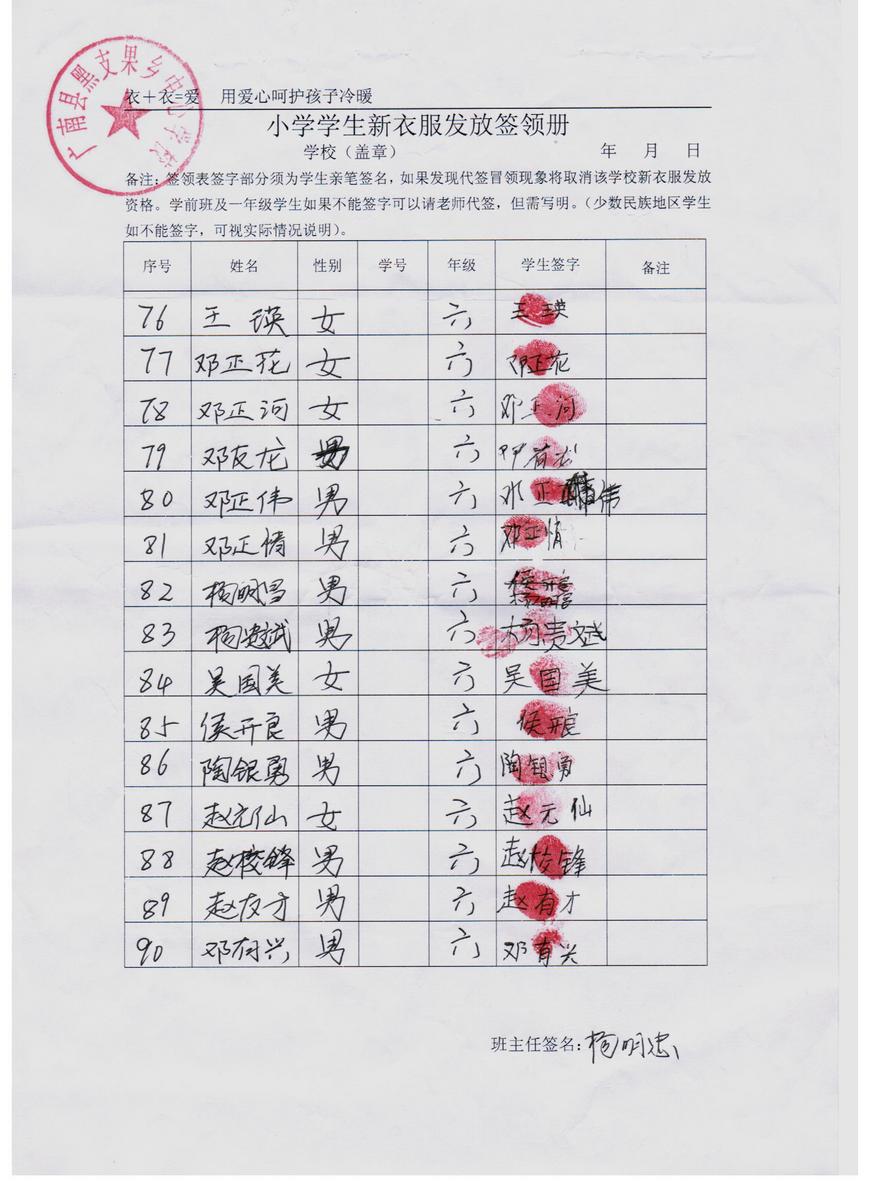 广南县黑支果乡中心学校
衣＋衣=爱 用爱心呵护孩子冷暖
小学学生新衣服发放签领册
学校（盖章） 年 月 日
备注：签领表签字部分须为学生亲笔签名，如果发现代签冒领现象将取消该学校新衣服发放
资格。学前班及一年级学生如果不能签字可以请老师代签，但需写明。（少数民族地区学生
如不能签字，可视实际情况说明）。
序号 姓名 性别 学号 年级 学生签字 备注
76 王瑛 女 六 王瑛
77 邓正花 女 六 邓正花
78 邓正河 女 六 邓正河
79 邓友龙 男 六 邓有龙
80 邓正伟 男 六 邓正伟
81 邓正情 男 六 邓正情
82 杨明昌 男 六
83 杨贵斌 男 六 杨贵斌
84 吴国美 女 六 吴国美
85 侯开良 男 六 侯开良
86 陶银勇 男 六 陶银勇
87 赵元仙 女 六 赵元仙
88 赵校锋 男 六 赵校锋
89 赵友才 男 六 赵有才
90 邓有兴 男 六 邓有兴
班主任签名：杨明忠